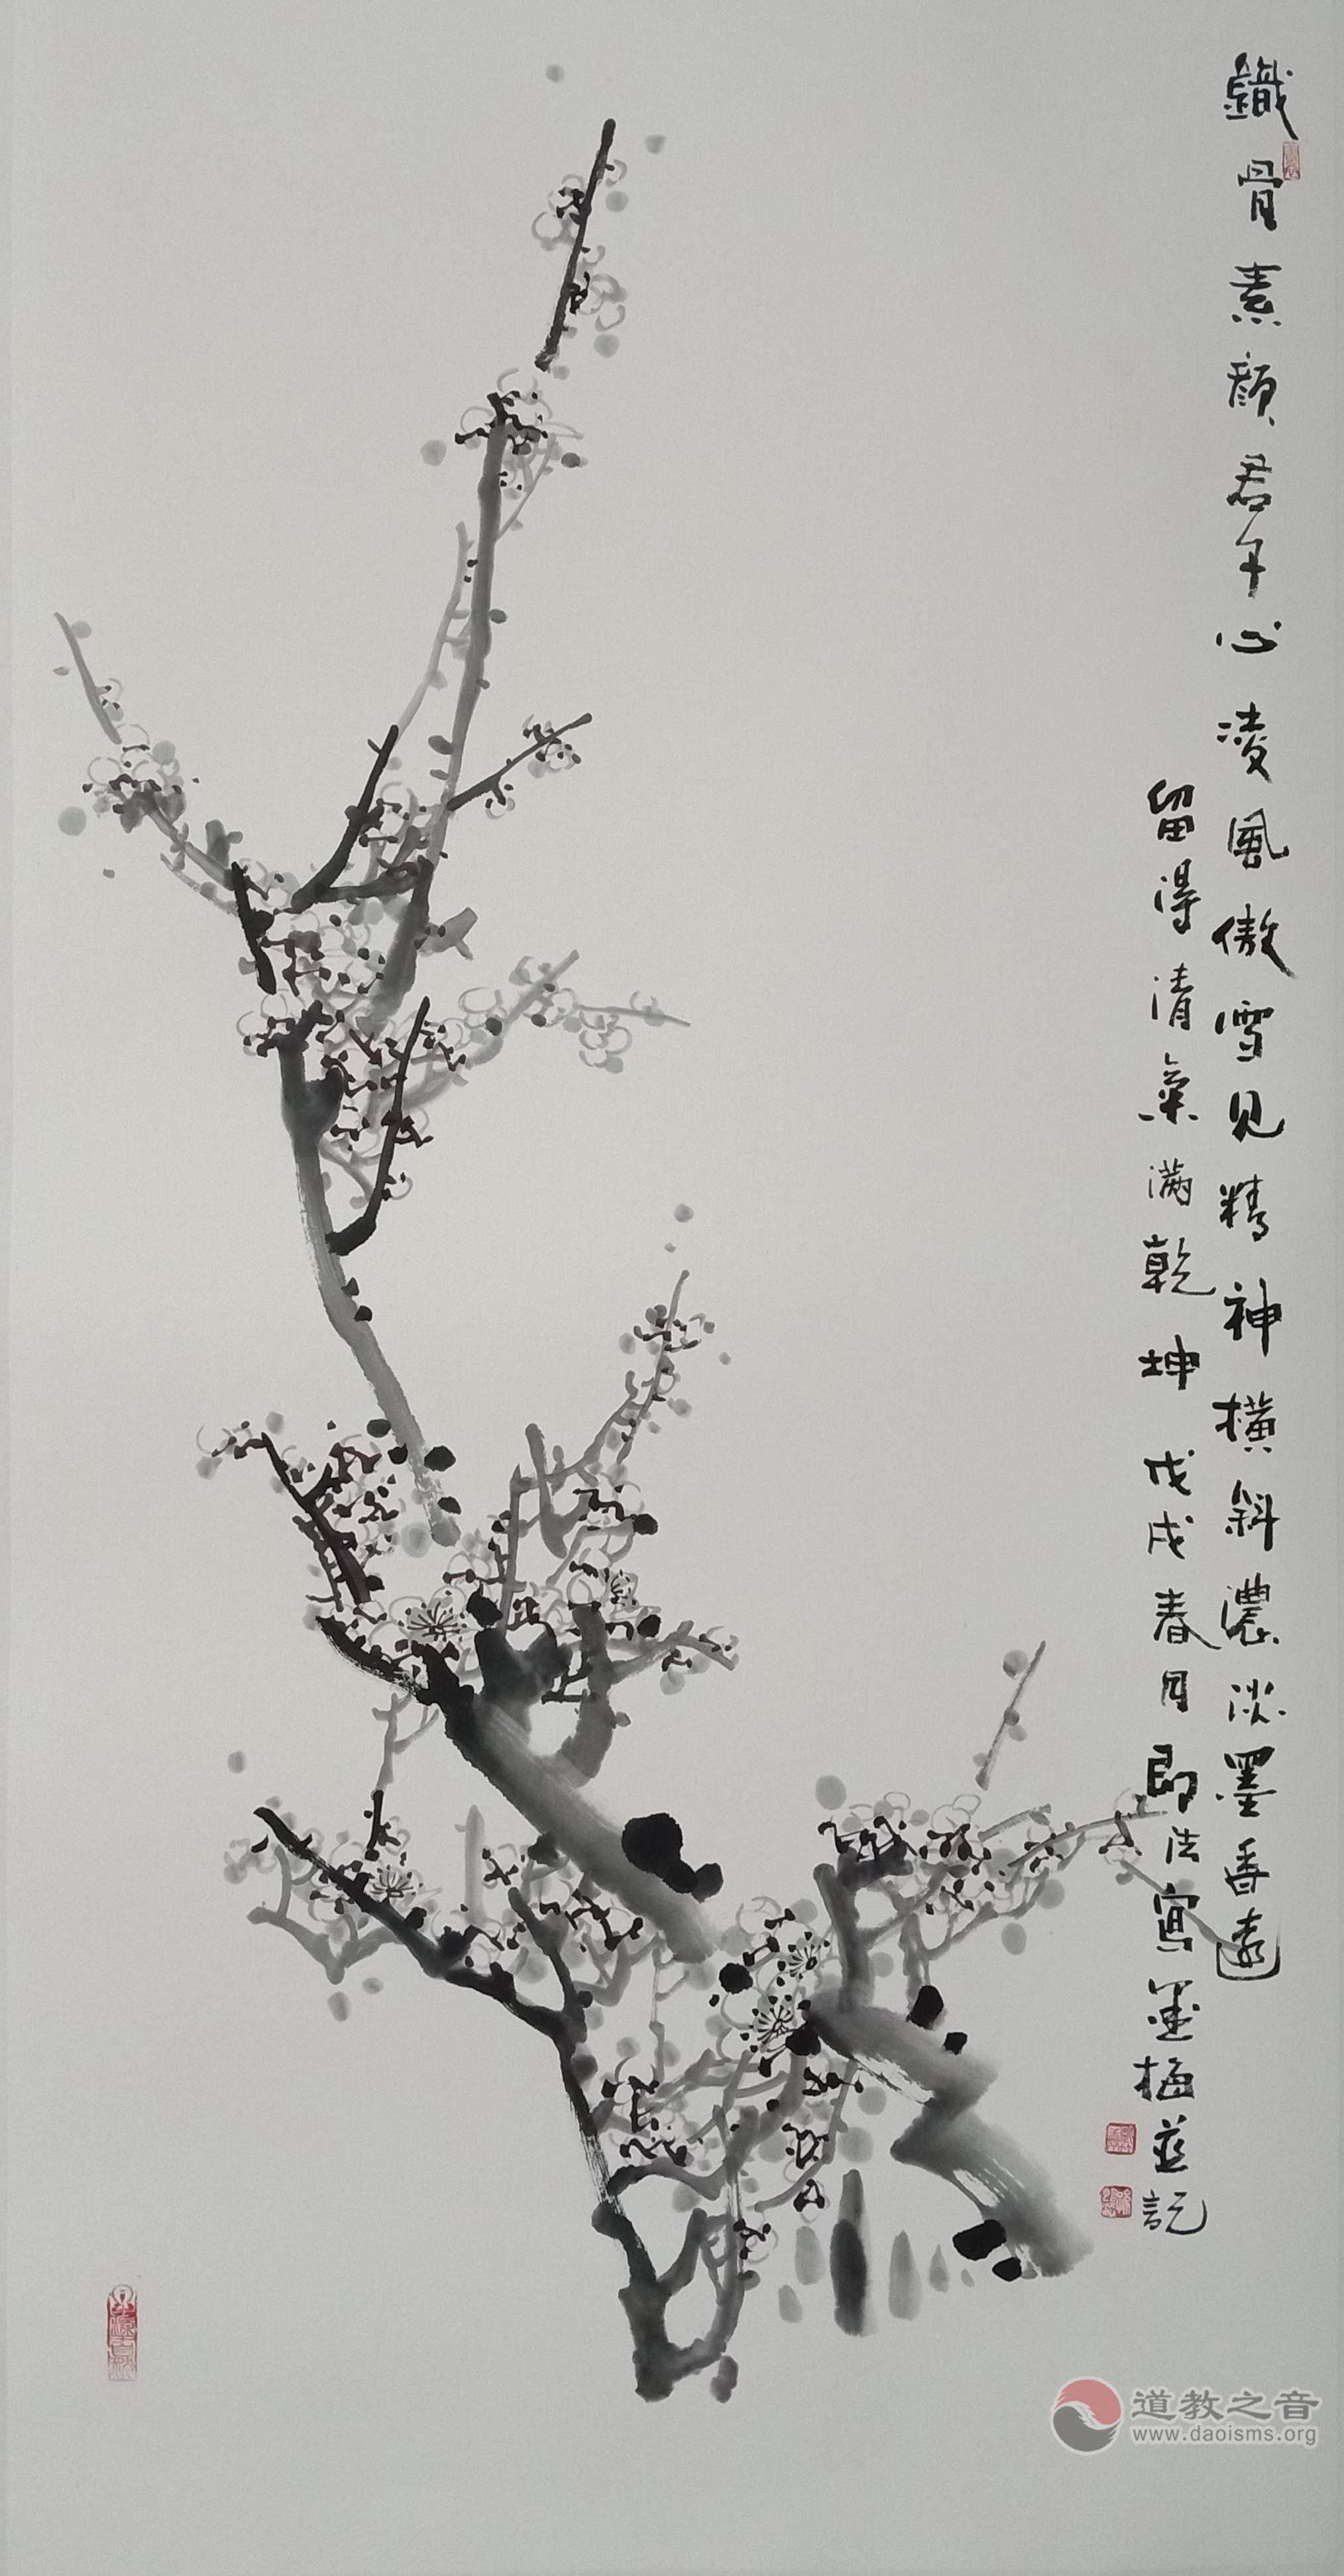 鐵骨素顏君子心凌風傲雪見精神橫斜濃淡墨香遠
留得清氣滿乾坤戊戌春月即法寫墨梅並記
道教之音
www.daoisms.org